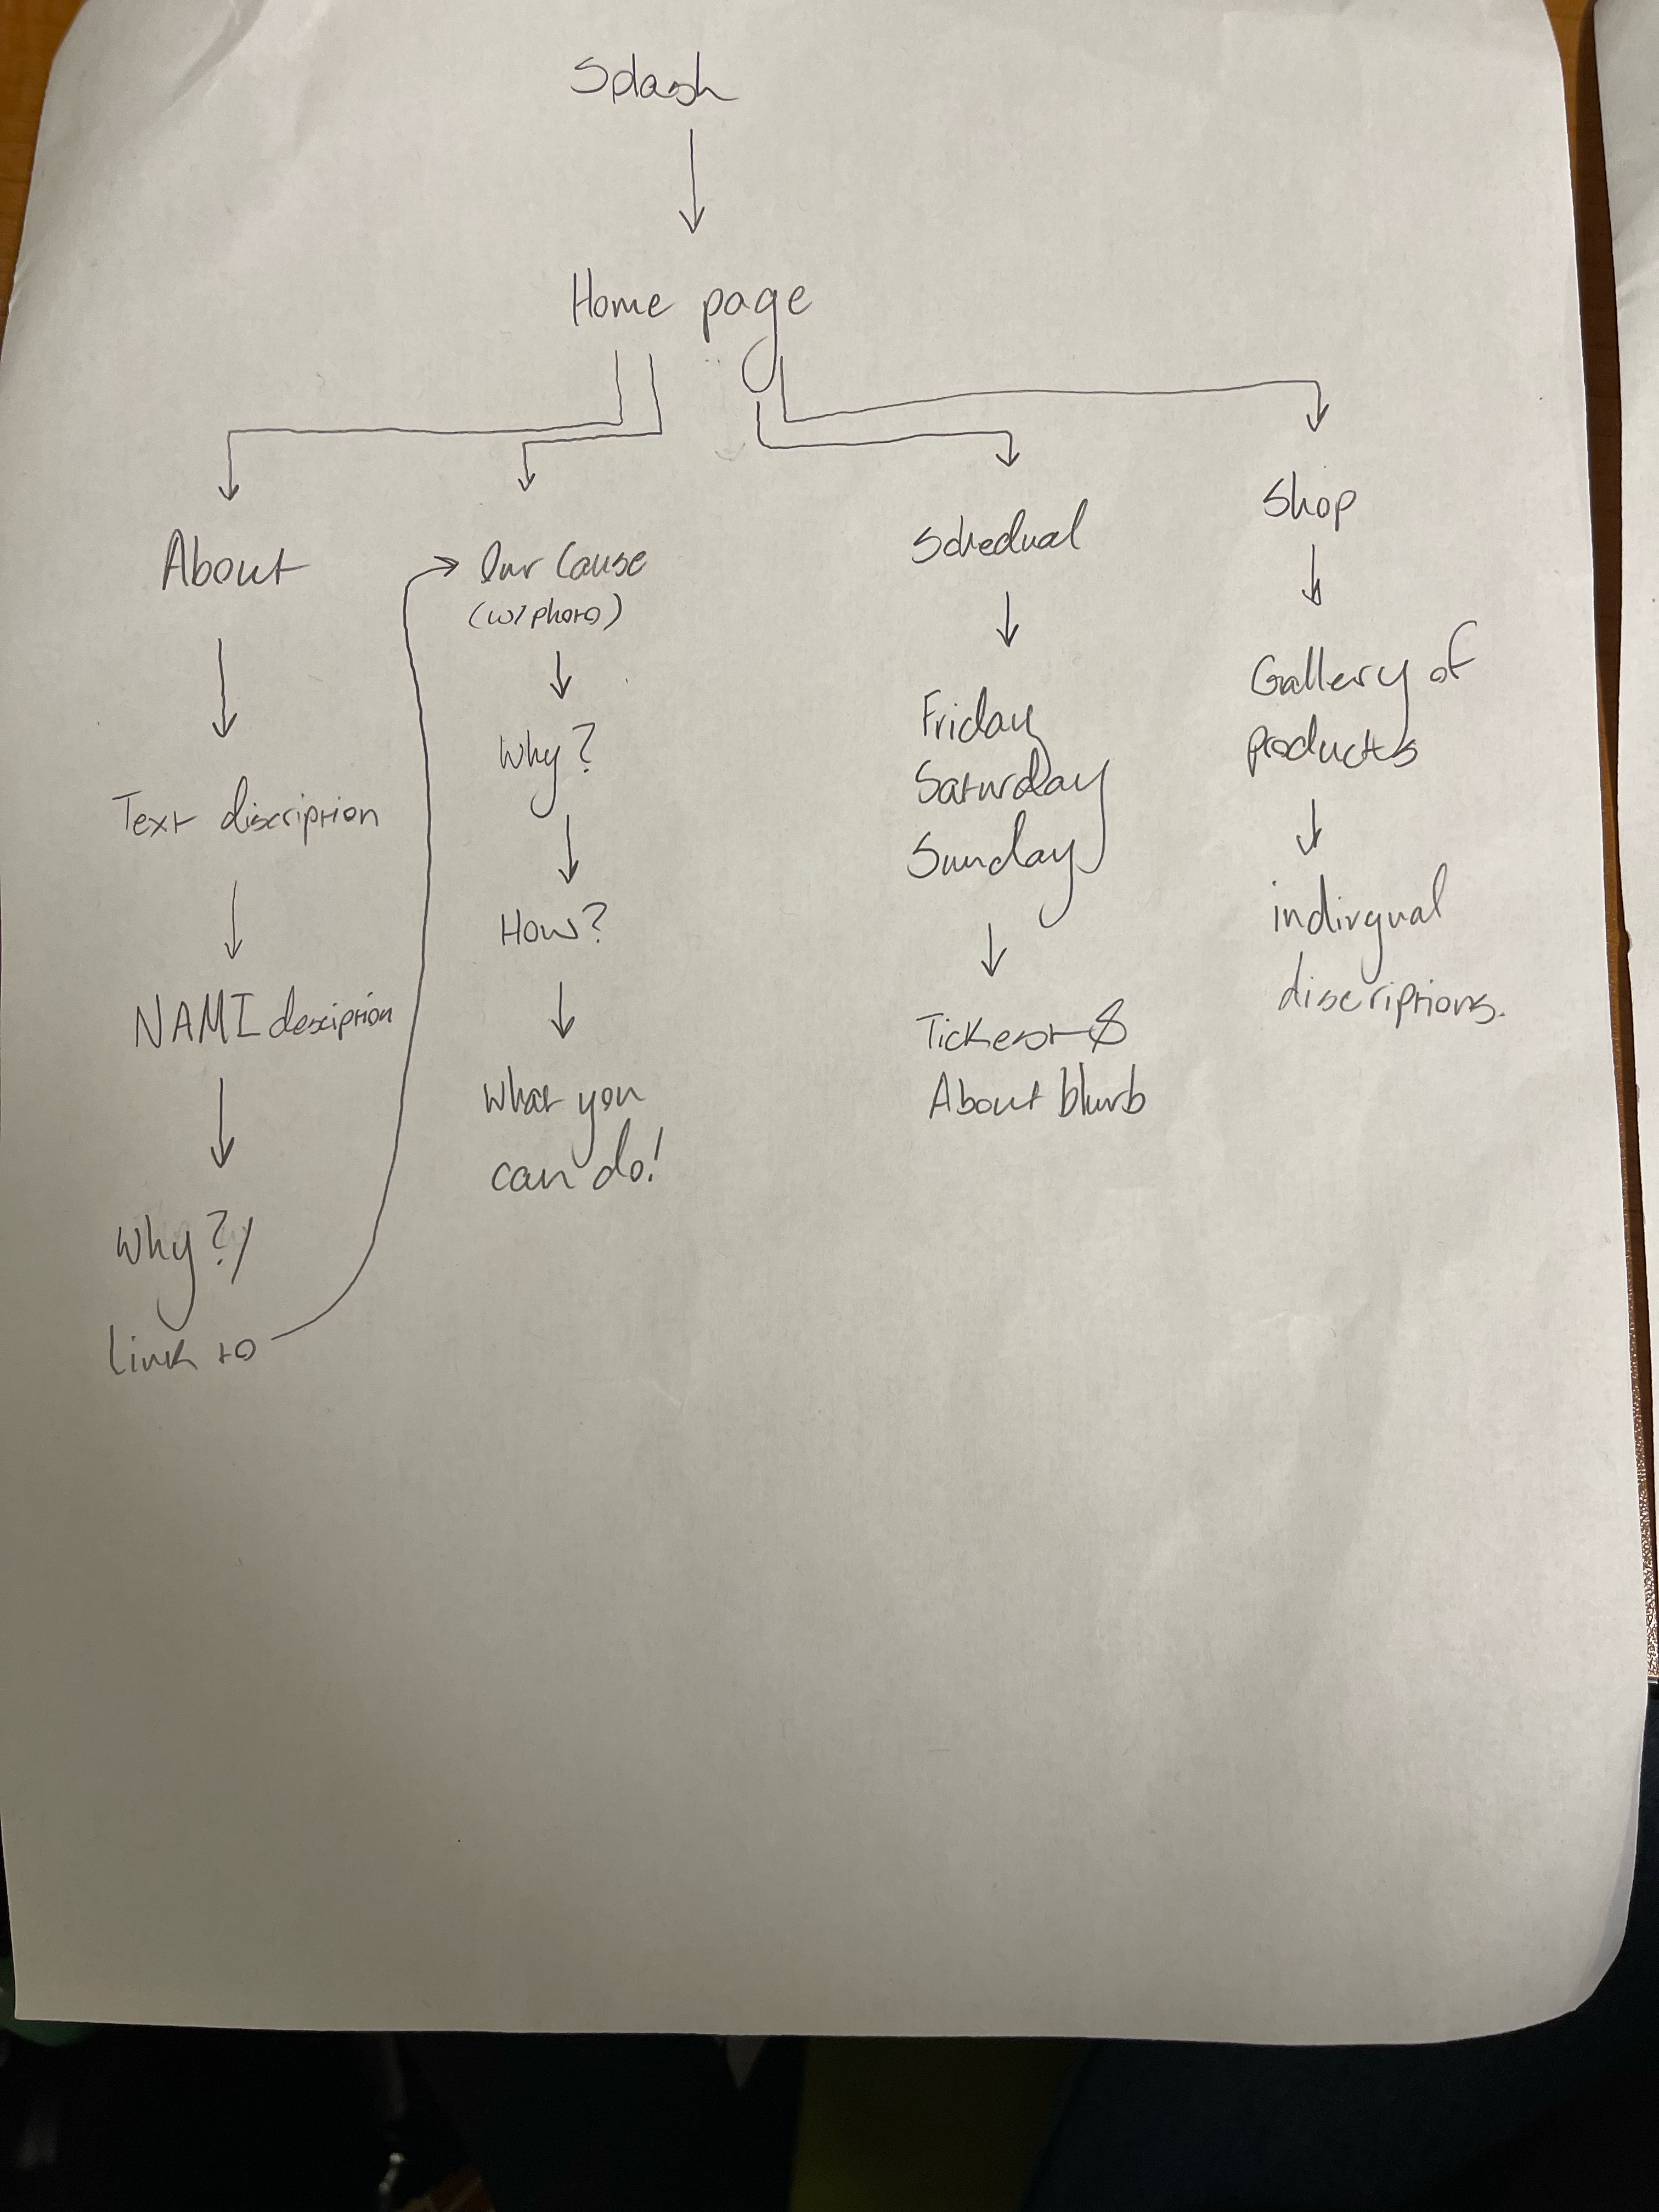 Splash
Home page
About
Text discription
NAMI desciption
Why?/
Link to
Our Cause
(w/photo)
Why?
How?
What you
can do!
Schedual
Friday
Saturday
Sunday
$
About blurb
Shop
Gallery of
products
discriptions.